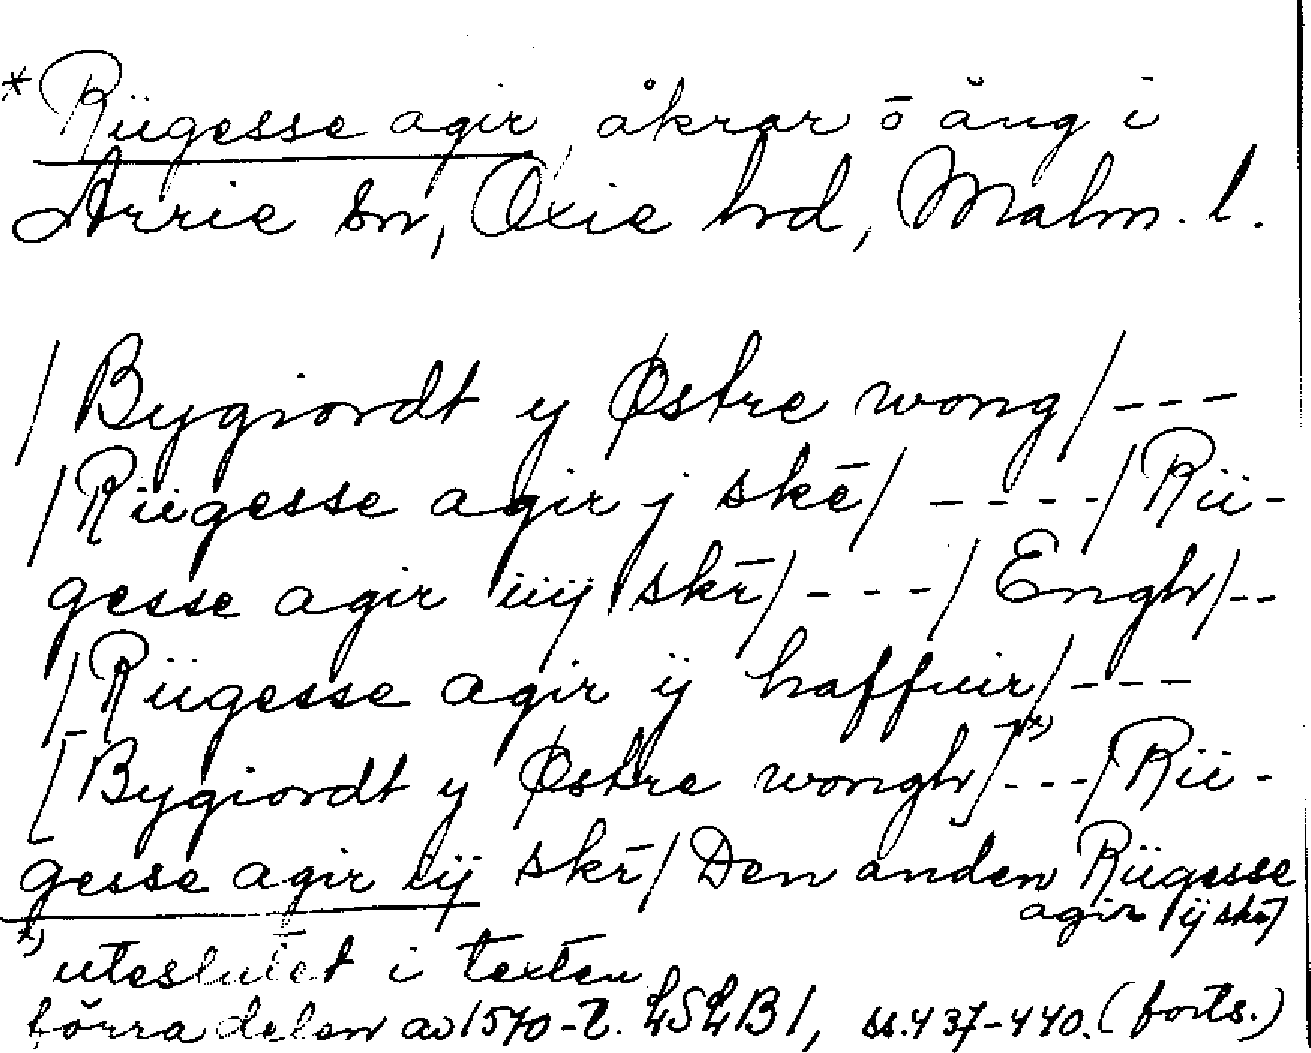 * Rügesse agir, åkrar o äng i
Arrie sn, Oxie hd, Malm. l.
/Bygiordt y Østre wong/---
/Rügesse agir j skē/----/Rü-
gesse agir iiij skī/---/Engh/--
/Rügesse agir ij haffuir/---
[Bygiordt y Østre wongh]x)---/Rü-
gesse agir iij skī/Den anden Rügesse
agir ij skī/
x) uteslutet i texten
förra delen av 1570-t. LSLB 1, ss. 437-440. (forts.)